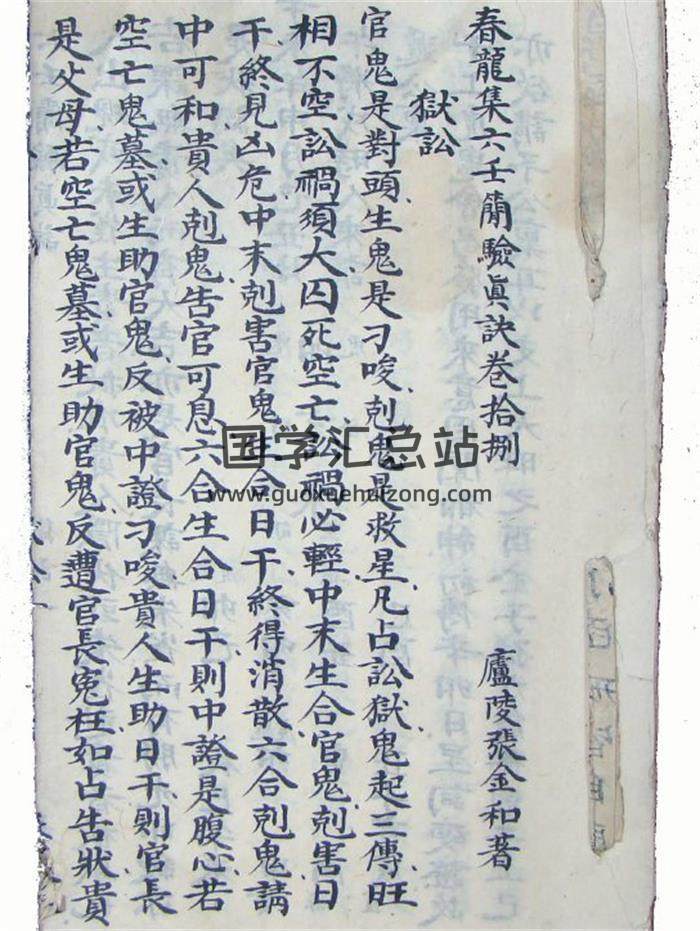 春龍集六壬簡驗眞訣卷拾捌 廬陵張金和著
獄訟
官鬼是對頭生鬼是刁唆剋鬼是救星凡占訟獄鬼起三傳旺
相不空訟禍須大囚死空亡訟禍必輕中末生合官鬼剋害日
干終見凶危中末剋害官鬼生合日干終得消散六合剋鬼請
中可和貴人剋鬼告官可息六合生合日干則中證是腹心若
空亡鬼墓或生助官鬼反被中證刁唆貴人生助日干則官長
是父母若空亡鬼墓或生助官鬼反遭官長寃枉如占告狀貴
国学汇总站
www.guoxuehuizong.com